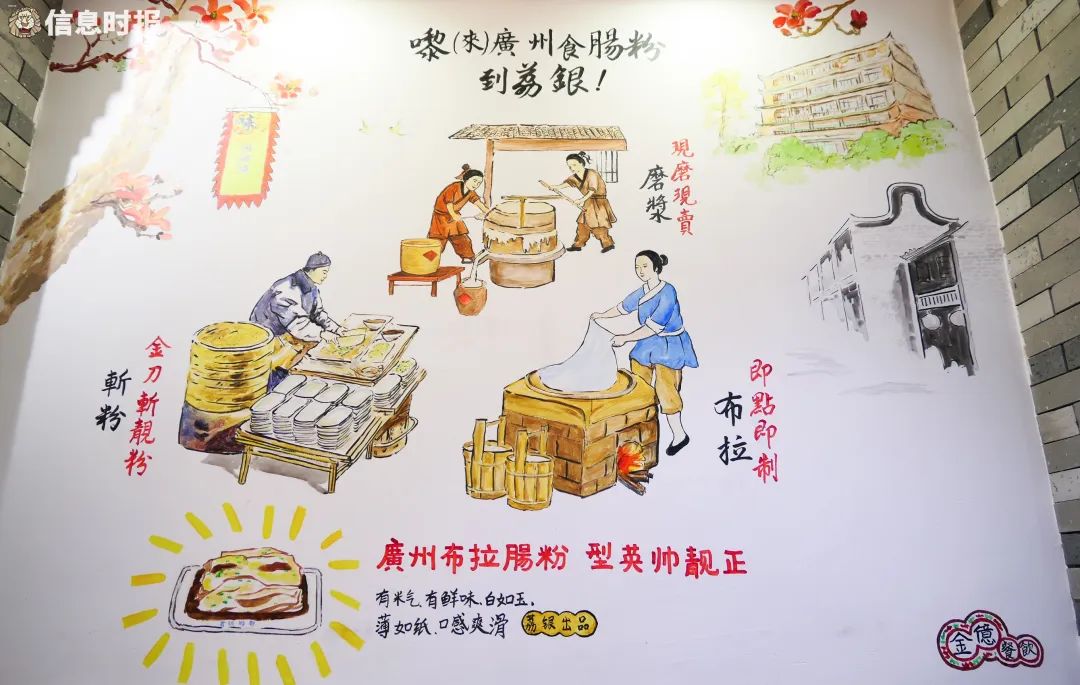 信息时报
嚟(來)廣州食腸粉
到荔銀!
味
現磨現賣
磨漿
金刀斬靚粉
斬粉
即點即制
布拉
廣州布拉腸粉 型英帅靓正
有米气.有鲜味.白如玉.
薄如纸.口感爽滑
荔银出品
金億餐飲